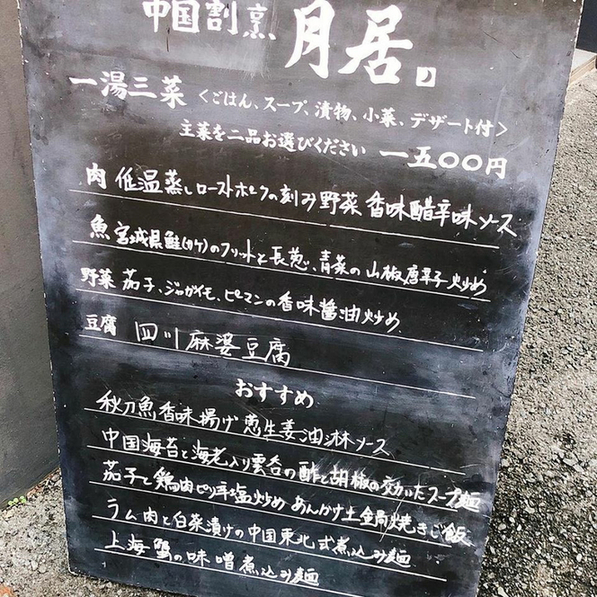 中国割烹 月居
一湯三菜 〈ごはん、スープ、漬物、小菜、デザート付〉
主菜を二品お選びください 一五〇〇円
肉 低温蒸しローストポークの刻み野菜 香味醋辛味ソース
魚 宮城県鮭(サケ)のフリットと長葱、青菜の山椒唐辛子炒め
野菜 茄子、ジャガイモ、ピーマンの香味醬油炒め
豆腐 四川麻婆豆腐
おすすめ
秋刀魚香味揚げ 葱生姜油淋ソース
中国海苔と海老入り雲呑の酢と胡椒の効いたスープ麺
茄子と鶏肉ピリ辛塩炒め あんかけ土鍋焼きご飯
ラム肉と白菜漬けの中国東北式煮込み麺
上海蟹の味噌煮込み麺